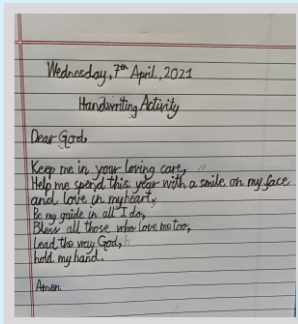 Wednesday, 7th April, 2021
Handwriting Activity
Dear God,
Keep me in your loving care,
Help me spend this year with a smile on my face
and love in my heart,
Be my guide in all I do,
Bless all those who love me too,
Lead the way God,
hold my hand.
Amen.